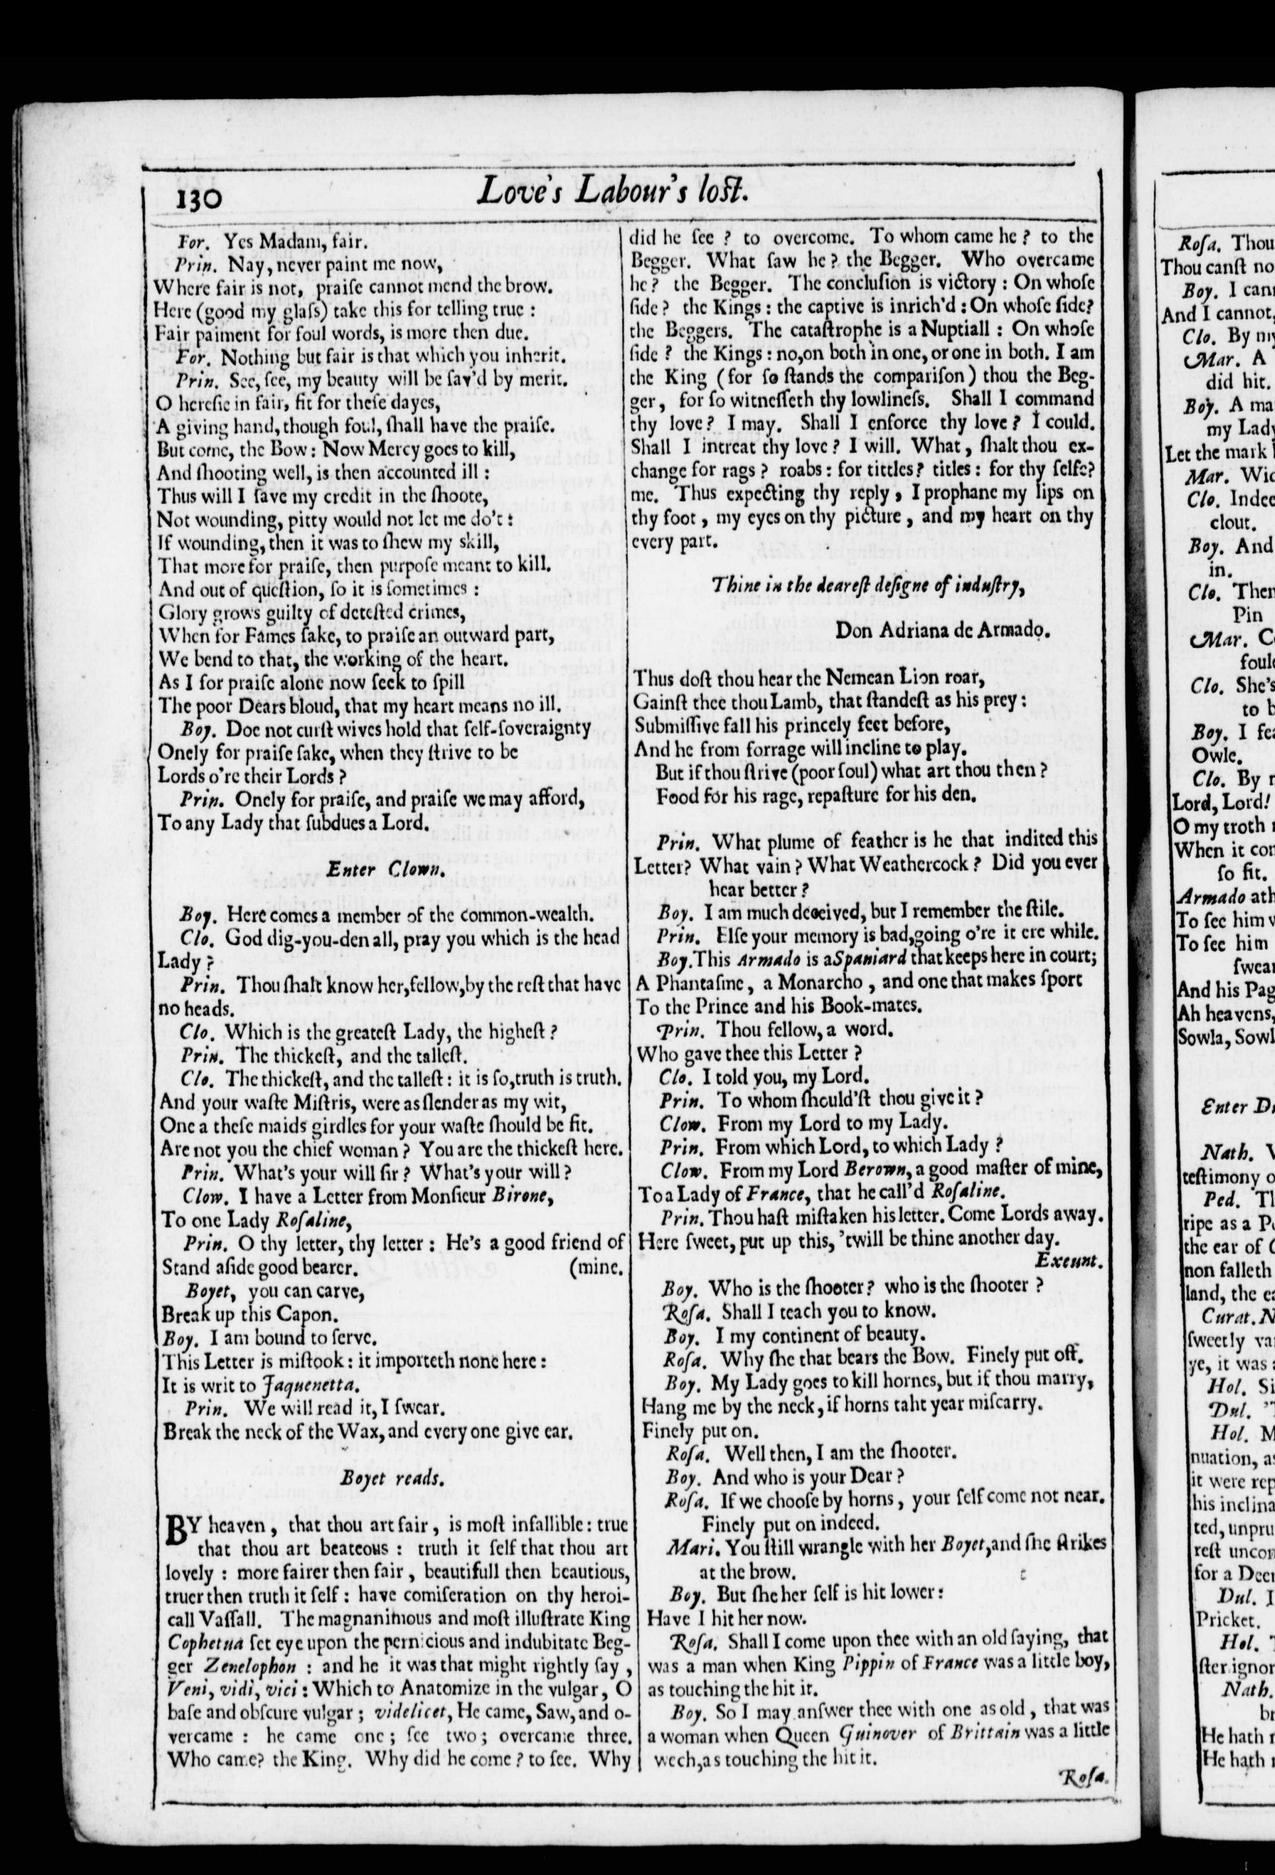 130
Love's Labour's lost.
For. Yes Madam, fair.
Prin. Nay, never paint me now,
Where fair is not, praiſe cannot mend the brow.
Here (good my glaſs) take this for telling true :
Fair paiment for foul words, is more then due.
For. Nothing but fair is that which you inherit.
Prin. See, ſee, my beauty will be ſav'd by merit.
O hereſie in fair, fit for theſe dayes,
A giving hand, though foul, ſhall have the praiſe.
But come, the Bow: Now Mercy goes to kill,
And ſhooting well, is then accounted ill :
Thus will I ſave my credit in the ſhoote,
Not wounding, pitty would not let me do't :
If wounding, then it was to ſhew my skill,
That more for praiſe, then purpoſe meant to kill.
And out of queſtion, ſo it is ſometimes :
Glory grows guilty of deteſted crimes,
When for Fames ſake, to praiſe an outward part,
We bend to that, the working of the heart.
As I for praiſe alone now ſeek to ſpill
The poor Dears bloud, that my heart means no ill.
Boy. Doe not curſt wives hold that ſelf-ſoveraignty
Onely for praiſe ſake, when they ſtrive to be
Lords o're their Lords ?
Prin. Onely for praiſe, and praiſe we may afford,
To any Lady that ſubdues a Lord.
Enter Clown.
Boy. Here comes a member of the common-wealth.
Clo. God dig-you-den all, pray you which is the head
Lady ?
Prin. Thou ſhalt know her, fellow, by the reſt that have
no heads.
Clo. Which is the greateſt Lady, the higheſt ?
Prin. The thickeſt, and the talleſt.
Clo. The thickeſt, and the talleſt : it is ſo, truth is truth.
And your waſte Miſtris, were as ſlender as my wit,
One a theſe maids girdles for your waſte ſhould be fit.
Are not you the chief woman ? You are the thickeſt here.
Prin. What's your will ſir ? What's your will ?
Clow. I have a Letter from Monſieur Birone,
To one Lady Roſaline,
Prin. O thy letter, thy letter : He's a good friend of
Stand aſide good bearer. (mine.
Boyet, you can carve,
Break up this Capon.
Boy. I am bound to ſerve.
This Letter is miſtook : it importeth none here :
It is writ to Jaquenetta.
Prin. We will read it, I ſwear.
Break the neck of the Wax, and every one give ear.
Boyet reads.
BY heaven, that thou art fair, is moſt infallible : true
that thou art beateous : truth it ſelf that thou art
lovely : more fairer then fair, beautifull then beautious,
truer then truth it ſelf : have comiſeration on thy heroi-
call Vaſſall. The magnanimous and moſt illuſtrate King
Cophetua ſet eye upon the pernicious and indubitate Beg-
ger Zenelophon : and he it was that might rightly ſay,
Veni, vidi, vici : Which to Anatomize in the vulgar, O
baſe and obſcure vulgar ; videlicet, He came, Saw, and o-
vercame : he came one ; ſee two ; overcame three.
Who came? the King. Why did he come ? to ſee. Why
did he ſee ? to overcome. To whom came he ? to the
Begger. What ſaw he ? the Begger. Who overcame
he ? the Begger. The concluſion is victory : On whoſe
ſide ? the Kings : the captive is inrich'd : On whoſe ſide?
the Beggers. The cataſtrophe is a Nuptiall : On whoſe
ſide ? the Kings : no, on both in one, or one in both. I am
the King (for ſo ſtands the compariſon) thou the Beg-
ger, for ſo witneſſeth thy lowlineſs. Shall I command
thy love? I may. Shall I enforce thy love? I could.
Shall I intreat thy love? I will. What, ſhalt thou ex-
change for rags ? roabs : for tittles? titles : for thy ſelfe?
me. Thus expecting thy reply, I prophane my lips on
thy foot, my eyes on thy picture, and my heart on thy
every part.
Thine in the deareſt deſigne of induſtry,
Don Adriana de Armado.
Thus doſt thou hear the Nemean Lion roar,
Gainſt thee thou Lamb, that ſtandeſt as his prey :
Submiſſive fall his princely feet before,
And he from forrage will incline to play.
But if thou ſtrive (poor ſoul) what art thou then ?
Food for his rage, repaſture for his den.
Prin. What plume of feather is he that indited this
Letter? What vain? What Weathercock? Did you ever
hear better ?
Boy. I am much deceived, but I remember the ſtile.
Prin. Elſe your memory is bad, going o're it ere while.
Boy. This Armado is a Spaniard that keeps here in court;
A Phantaſme, a Monarcho, and one that makes ſport
To the Prince and his Book-mates.
Prin. Thou fellow, a word.
Who gave thee this Letter ?
Clo. I told you, my Lord.
Prin. To whom ſhould'ſt thou give it ?
Clow. From my Lord to my Lady.
Prin. From which Lord, to which Lady ?
Clow. From my Lord Berown, a good maſter of mine,
To a Lady of France, that he call'd Roſaline.
Prin. Thou haſt miſtaken his letter. Come Lords away.
Here ſweet, put up this, 'twill be thine another day.
Exeunt.
Boy. Who is the ſhooter? who is the ſhooter ?
Roſa. Shall I teach you to know.
Boy. I my continent of beauty.
Roſa. Why ſhe that bears the Bow. Finely put off.
Boy. My Lady goes to kill hornes, but if thou marry,
Hang me by the neck, if horns taht year miſcarry.
Finely put on.
Roſa. Well then, I am the ſhooter.
Boy. And who is your Dear ?
Roſa. If we chooſe by horns, your ſelf come not near.
Finely put on indeed.
Mari. You ſtill wrangle with her Boyet, and ſhe ſtrikes
at the brow.
Boy. But ſhe her ſelf is hit lower :
Have I hit her now.
Roſa. Shall I come upon thee with an old ſaying, that
was a man when King Pippin of France was a little boy,
as touching the hit it.
Boy. So I may anſwer thee with one as old, that was
a woman when Queen Guinover of Brittain was a little
wech, as touching the hit it.
Roſa.
Roſa. Thou
Thou canſt no
Boy. I can
And I cannot,
Clo. By my
Mar. A
did hit.
Boy. A ma
my Lady
Let the mark
Mar. Wid
Clo. Indee
clout.
Boy. And
in.
Clo. Then
Pin
Mar. Co
foule
Clo. She's
to b
Boy. I fea
Owle.
Clo. By m
Lord, Lord!
O my troth
When it con
ſo fit.
Armado ath
To ſee him
To ſee him
ſwear
And his Pag
Ah heavens,
Sowla, Sowl
Enter D
Nath. V
teſtimony o
Ped. Th
ripe as a Po
the ear of C
non falleth
land, the ea
Curat. N
ſweetly va
ye, it was a
Hol. Si
Dul. 'T
Hol. M
nuation, as
it were rep
his inclina
ted, unpru
reſt uncon
for a Deer
Dul. I
Pricket.
Hol. T
ſter ignor
Nath.
br
He hath
He hath